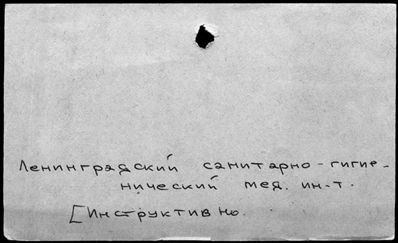 Ленинградский санитарно-гигие-
нический мед. ин-т.
[Инструктивно.